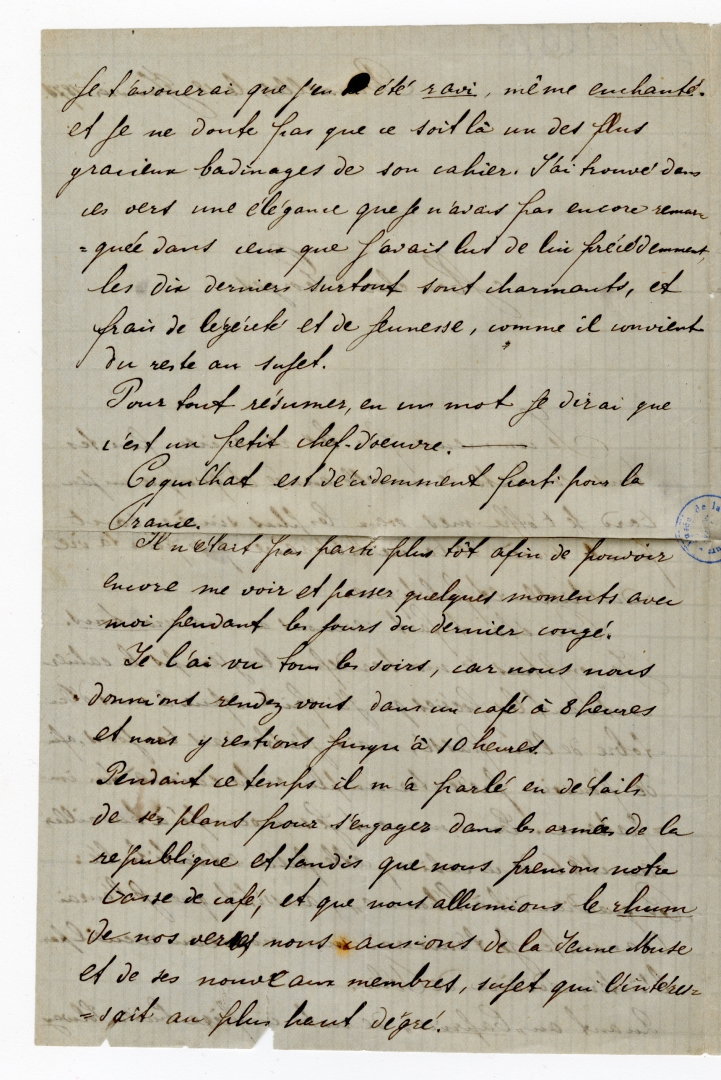 Je t'avouerai que j'en ai été ravi, même enchanté.
et je ne doute pas que ce soit là un des plus
gracieux badinages de son cahier. J'ai trouvé dans
ces vers une élégance que je n'avais pas encore remar=
=quée dans ceux que j'avais lus de lui précédemment,
les dix derniers surtout sont charmants, et
frais de légéreté et de jeunesse, comme il convient
du reste au sujet.
Pour tout résumer, en un mot je dirai que
c'est un petit chef-d'oeuvre. —
Coquilhat est décidemment parti pour la
France.
Il n'était pas parti plus tôt afin de pouvoir
encore me voir et passer quelques moments avec
moi pendant les jours du dernier congé.
Je l'ai vu tous les soirs, car nous nous
donnions rendez vous dans un café à 8 heures
et nous y restions jusqu'à 10 heures.
Pendant ce temps il m'a parlé en détails
de ses plans pour s'engager dans les armées de la
république et tandis que nous prenions notre
tasse de café, et que nous allumions le rhum
de nos verres nous causions de la Jeune Muse
et de ses nouveaux membres, sujet qui l'intéres=
=sait au plus haut dégré.